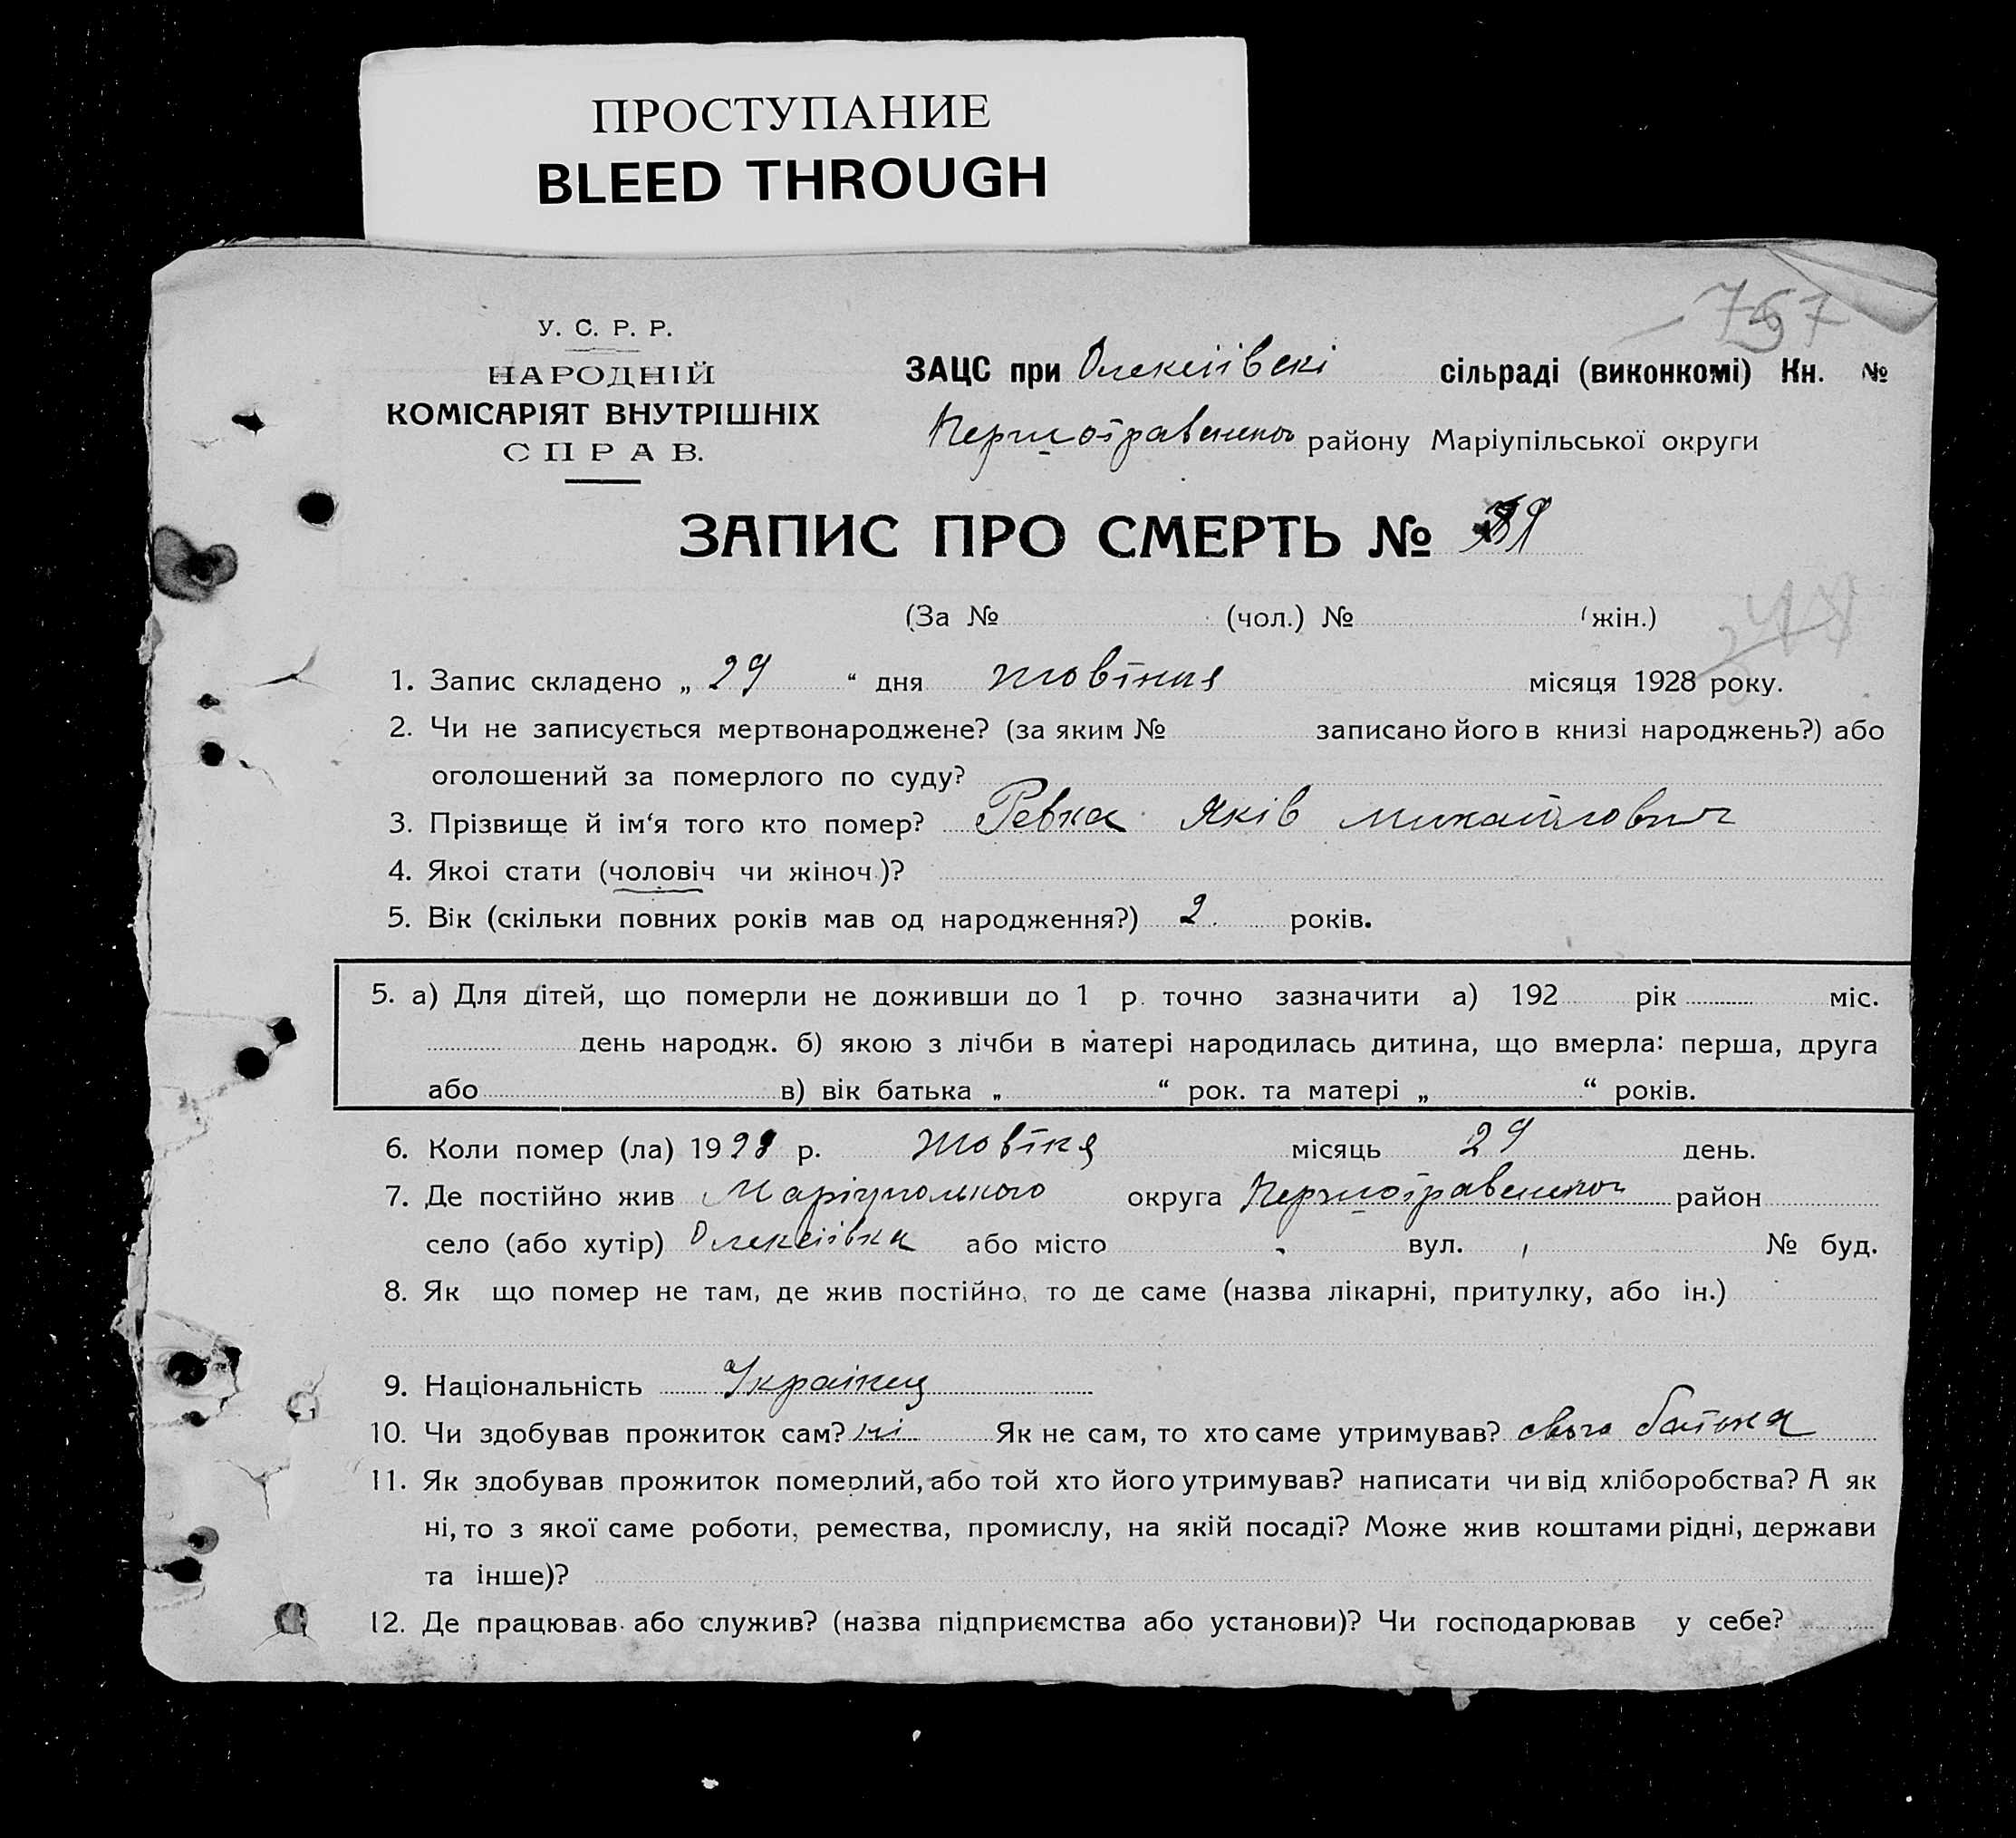 ПРОСТУПАНИЕ
BLEED THROUGH
757
У. С. Р. Р.
НАРОДНІЙ
КОМІСАРІЯТ ВНУТРІШНІХ
СПРАВ.
ЗАЦС при Олексіївскі сільраді (виконкомі) Кн. №
району Маріупільської округи
ЗАПИС ПРО СМЕРТЬ №
(За № (чол.) № (жін.)
1. Запис складено „ 29 “ дня жовтня місяця 1928 року.
2. Чи не записується мертвонароджене? (за яким № записано його в книзі народжень?) або
оголошений за померлого по суду?
3. Прізвище й ім'я того кто помер? Ревка Яків Михайлович
4. Якоі стати (чоловіч чи жіноч.)?
5. Вік (скільки повних років мав од народження?) 2 років.
5. а) Для дітей, що померли не доживши до 1 р. точно зазначити а) 192 рік міс.
день народж. б) якою з лічби в матері народилась дитина, що вмерла: перша, друга
або в) вік батька „ “ рок. та матері „ “ років.
6. Коли помер (ла) 1928 р. жовтня місяць 29 день.
7. Де постійно жив Маріупольського округа район
село (або хутір) Олексіївка або місто вул. № буд.
8. Як що помер не там, де жив постійно, то де саме (назва лікарні, притулку, або ін.)
9. Національність Українец
10. Чи здобував прожиток сам? ні Як не сам, то хто саме утримував? свого батька
11. Як здобував прожиток померлий, або той хто його утримував? написати чи від хліборобства? А як
ні, то з якої саме роботи, ремества, промислу, на якій посаді? Може жив коштами рідні, держави
та інше)?
12. Де працював або служив? (назва підприємства або установи)? Чи господарював у себе?